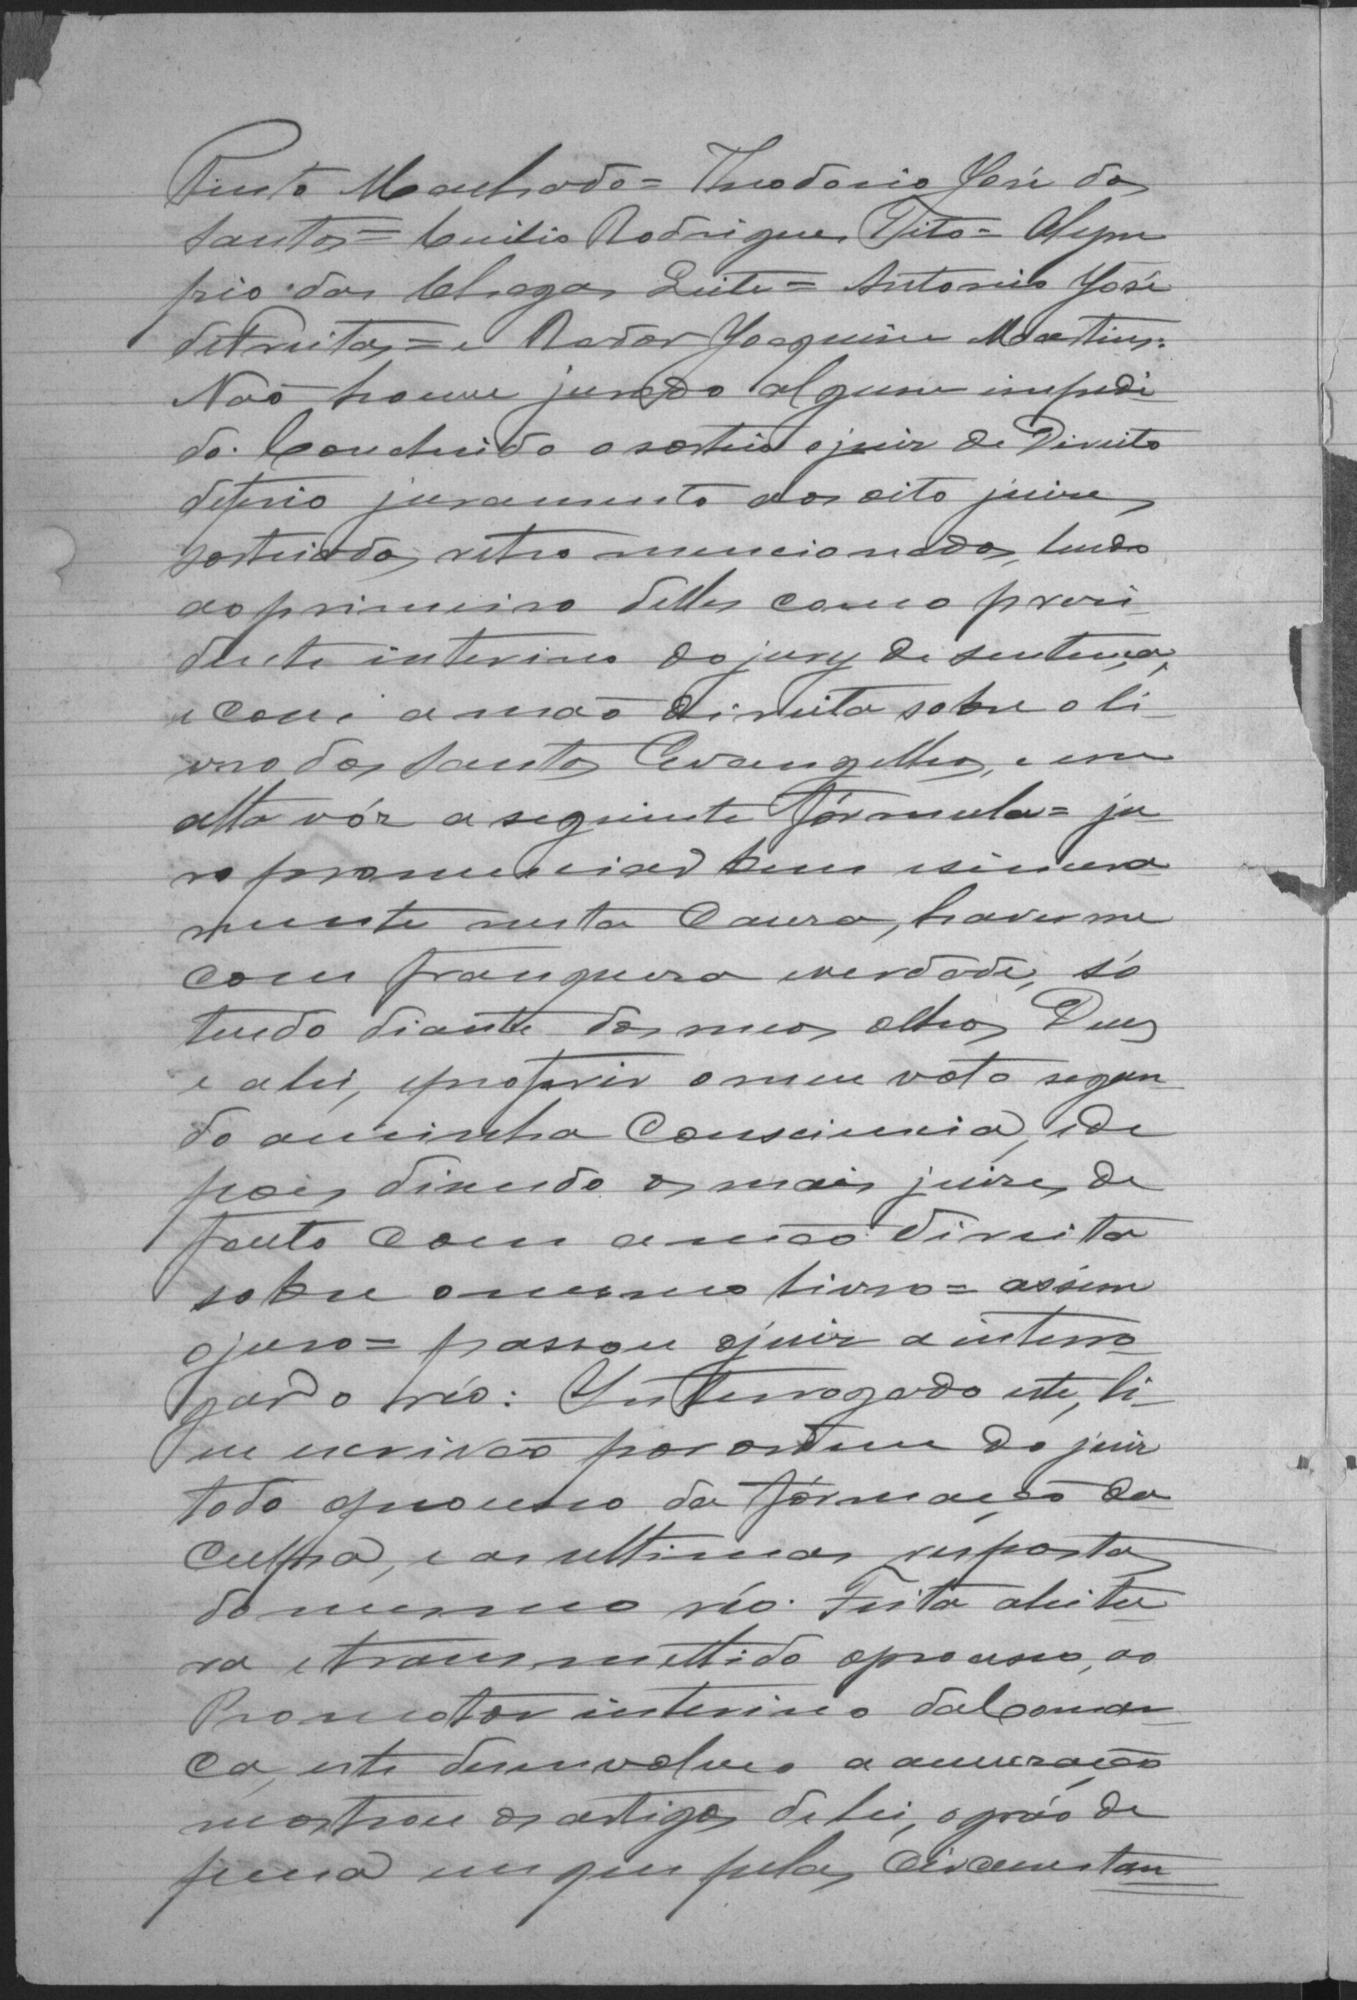 Pinto Machado = Theodorio José dos
Santos = Emilio Rodrigues Tito = Olym
pio das Chagas Leite = Antonio José
de Freitas = e Joaquim Martins.
Não houve jurado algum impedi
do. Concluido o sorteio o juiz de Direito
deferio juramento aos oito juizes
sorteiados retro mencionados, lendo
ao primeiro delles como presi
dente interino do jury de sentença,
e com a mão direita sobre o li
vro dos Santos Evangelhos, e em
alta vóz a seguinte fórmula = ju
ro pronunciar bem e sincera
mente nesta causa, haver-me
com franqueza e verdade, só
tendo diante dos meos olhos Deus
e a lei, e proferir o meu voto segun
do a minha Consciencia, e de
pois dizendo os mais juizes de
facto com a mão direita
sobre o mesmo livro = assim
o juro = passou o juiz a interro
gar o réo: Interrogado este, li
eu escrivão por ordem do juiz
todo o processo da fórmação da
Culpa, e as ultimas respostas
do mesmo réo. Feita a leitu
ra e transmettido o processo, ao
Promotor interino da Comar
ca, este desenvolveo a accusação
mostrou os artigos de lei, o gráo de
pena em que pelas circumstan